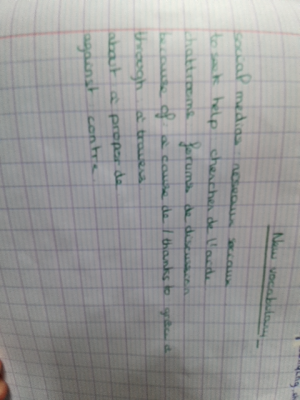 New vocabulary
social medias reseaux sociaux
to seek help chercher de l'aide
chattrooms forums de discussion
because of à cause de / thanks to grace à
through à travers
about à propos de
against contre